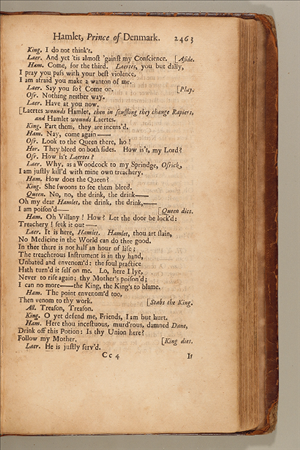 Hamlet, Prince of Denmark. 2463
King. I do not think't.
Laer. And yet 'tis almost 'gainst my Conscience. [Aside.
Ham. Come, for the third. Laertes, you but dally,
I pray you pass with your best violence.
I am afraid you make a wanton of me.
Laer. Say you so? Come on. [Play.
Osr. Nothing neither way.
Laer. Have at you now.
[Laertes wounds Hamlet, then in scuffling they change Rapiers,
and Hamlet wounds Laertes.
King. Part them, they are incens'd.
Ham. Nay, come again——
Osr. Look to the Queen there, ho!
Hor. They bleed on both sides. How is't, my Lord?
Osr. How is't Laertes?
Laer. Why, as a Woodcock to my Sprindge, Osrick,
I am justly kill'd with mine own treachery.
Ham. How does the Queen?
King. She swoons to see them bleed.
Queen. No, no, the drink, the drink——
Oh my dear Hamlet, the drink, the drink,——
I am poison'd—— [Queen dies.
Ham. Oh Villany! How? Let the door be lock'd:
Treachery! seek it out——
Laer. It is here, Hamlet. Hamlet, thou art slain,
No Medicine in the World can do thee good.
In thee there is not half an hour of life;
The treacherous Instrument is in thy hand,
Unbated and envenom'd: the foul practice
Hath turn'd it self on me. Lo, here I lye,
Never to rise again; thy Mother's poison'd:
I can no more——the King, the King's to blame.
Ham. The point envenom'd too,
Then venom to thy work. [Stabs the King.
All. Treason, Treason.
King. O yet defend me, Friends, I am but hurt.
Ham. Here thou incestuous, murd'rous, damned Dane,
Drink off this Potion: Is thy Union here?
Follow my Mother. [King dies.
Laer. He is justly serv'd.
Cc 4 It